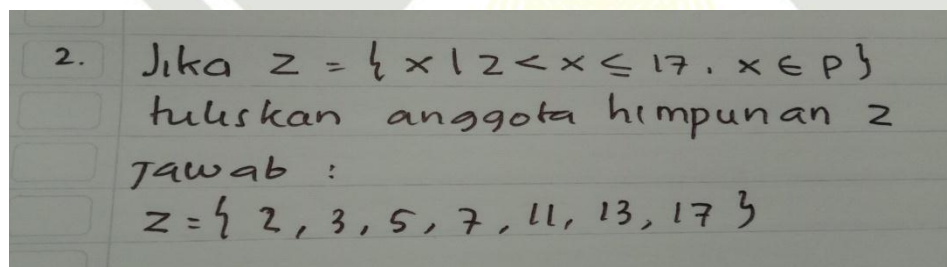 2. Jika z = { x | 2 < x ≤ 17, x ∈ p }
tuliskan anggota himpunan z
Jawab :
z = { 2, 3, 5, 7, 11, 13, 17 }